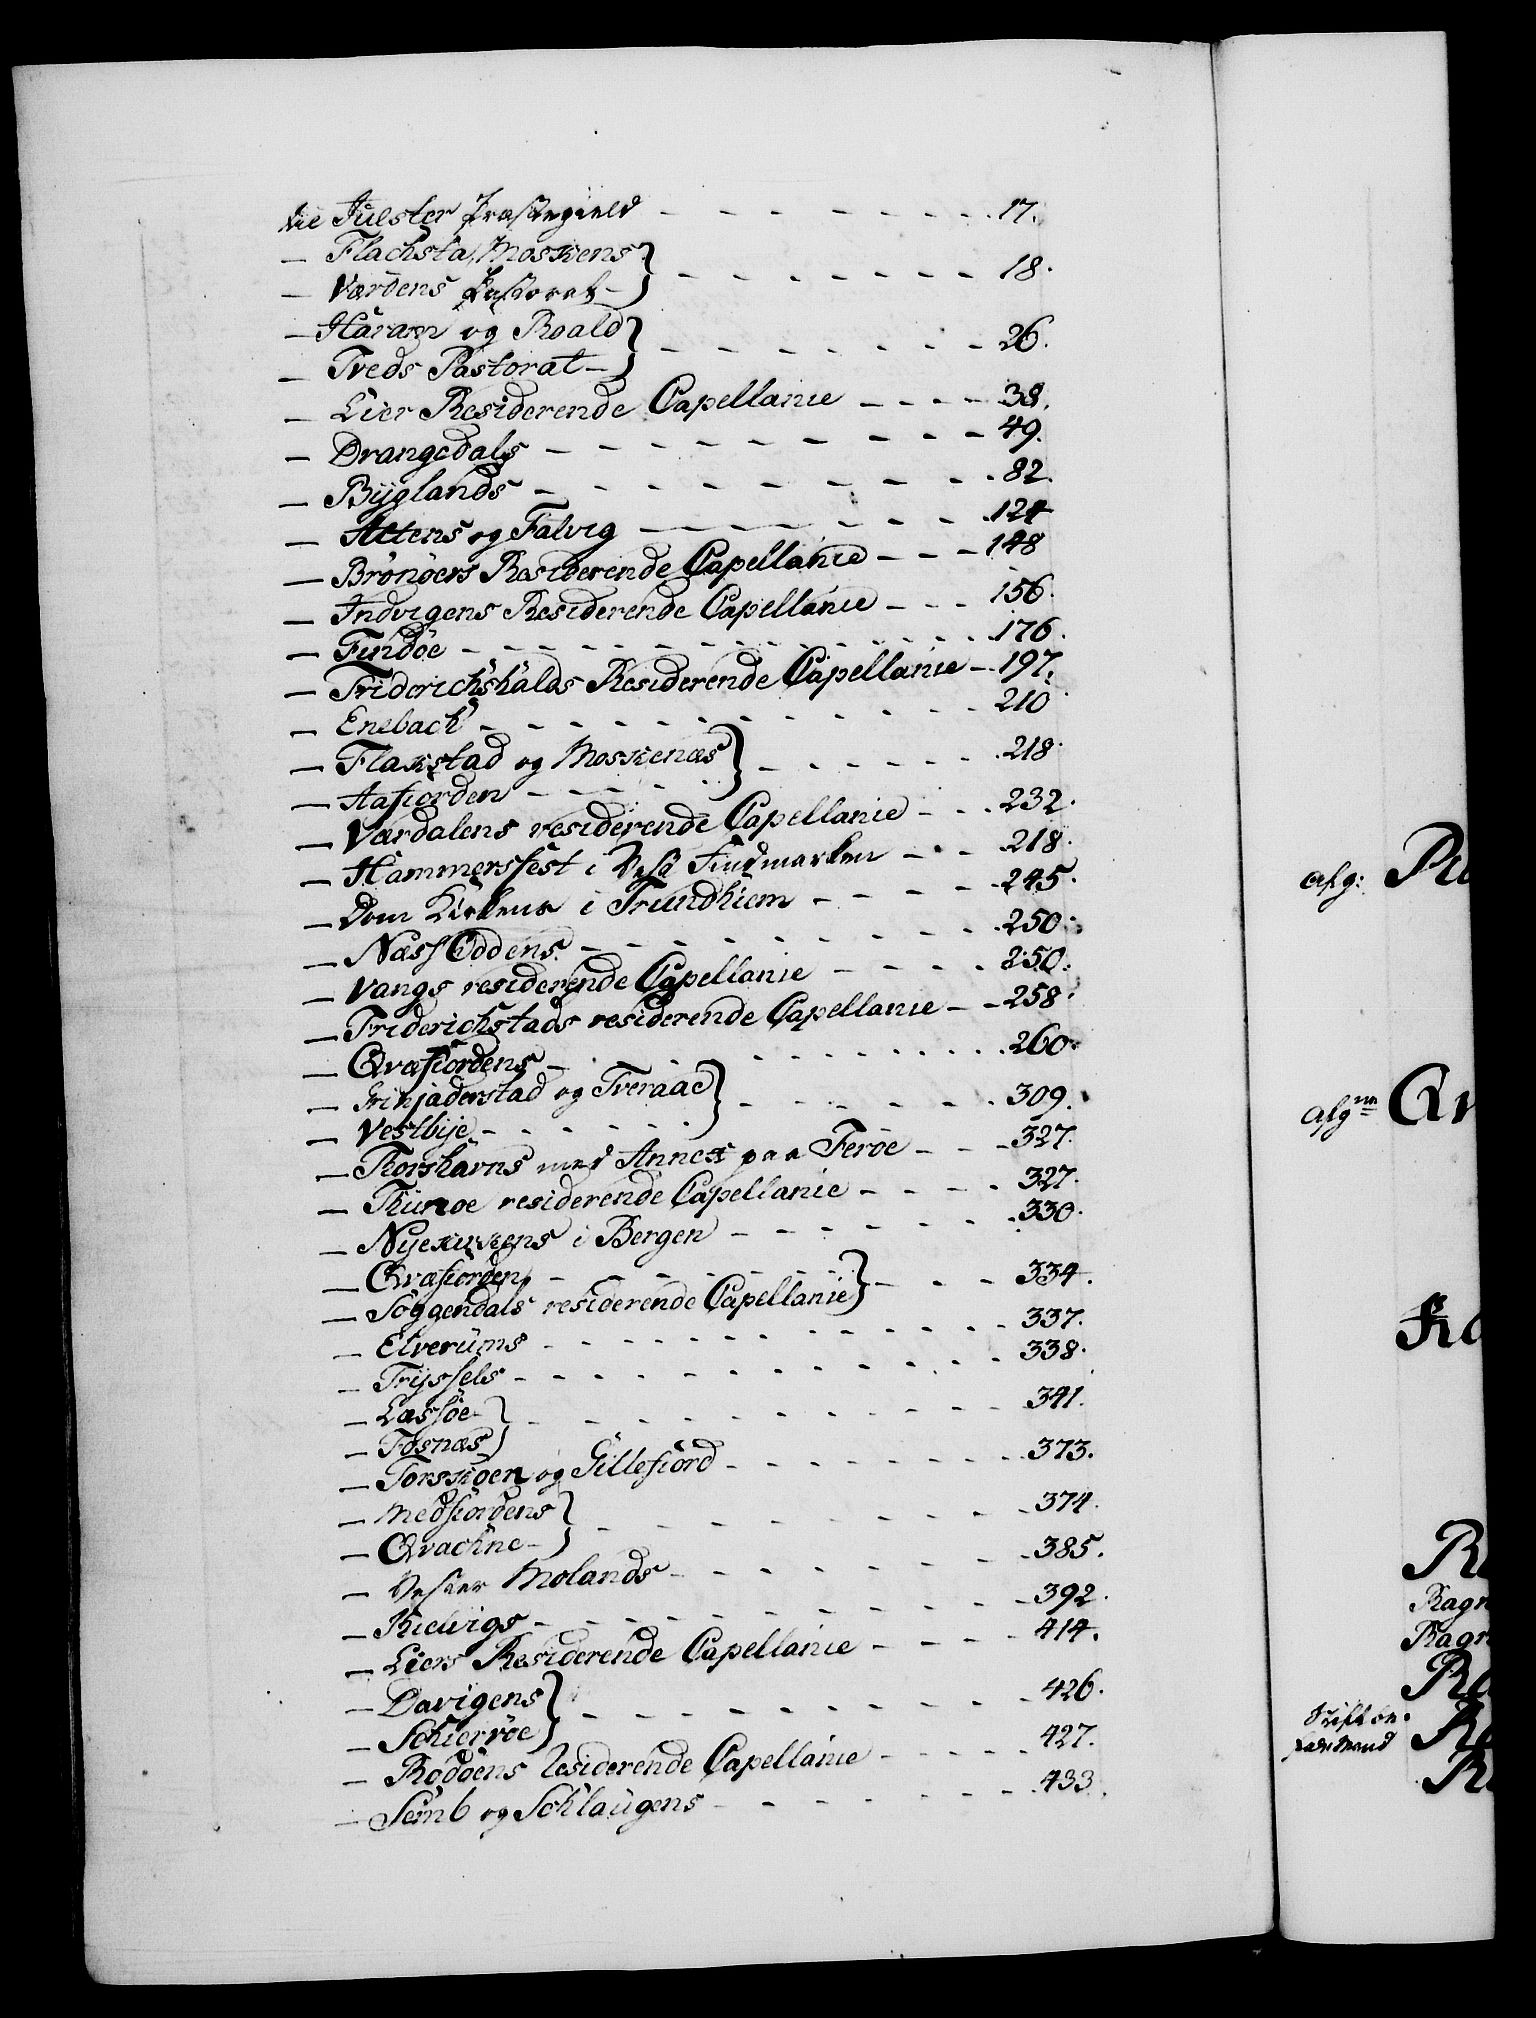 til Jülster Præstegield - - - - - - - - - 17.
- Flachsta, Moskens }
- Værøens Pastorat - } - - - - - - - 18.
- Haram og Roald }
- Treds Pastorat - } - - - - - - - 26.
- Lier Residerende Capellanie - - - - 38.
- Drangedals - - - - - - - - - 49.
- Byglands - - - - - - - - - 82.
- Altens og Talvig - - - - - - - 124
- Brønøers Residerende Capellanie - - - 148
- Indvigens Residerende Capellanie - - - 156.
- Findöe - - - - - - - - - - 176.
- Friderichshalds Residerende Capellanie - 197.
- Enebach - - - - - - - - - - 210
- Flakstad og Moskenæs }
- Aafiorden - - - - - } - - - - - - 218.
- Værdalens residerende Capellanie - - 232.
- Hammersfest i Vest Findmarken - - - 218.
- Dom Kirken i Trundhiem - - - - - 245.
- Næss Oddens - - - - - - - - - 250.
- Vangs residerende Capellanie - - - - - 250.
- Friderichstads residerende Capellanie - - 258.
- Qvæfiordens - - - - - - - - - 260.
- Grinjaderstad og Tveraae }
- Vestbye - - - - - - } - - - - - - 309.
- Thorshavns med Annex paa Feröe - - - 327.
- Thunoe residerende Capellanie - - - - 327.
- Nyekirkens i Bergen - - - - - - - 330.
- Qvæfiorden - - - - - - }
- Söggendals residerende Capellanie } - - - 334.
- Elverums - - - - - - - - - - 337.
- Tryssels - - - - - - - - - - 338.
- Læssöe - }
- Fosnæs } - - - - - - - - - - 341.
- Torskoen og Gillefiord - - - - - - - 373.
- Medfiordens }
- Qvachne - } - - - - - - - - 374.
- Vester Molands - - - - - - - 385.
- Kielvigs - - - - - - - - - 392.
- Liers Residerende Capellanie - - - - 414.
- Davigens }
- Schierröe } - - - - - - - - 426.
- Rödöens Residerende Capellanie - - - - 427.
- Semb og Schlaugens - - - - - - - 433.
afg:
afgnn
Ragn
Ragn